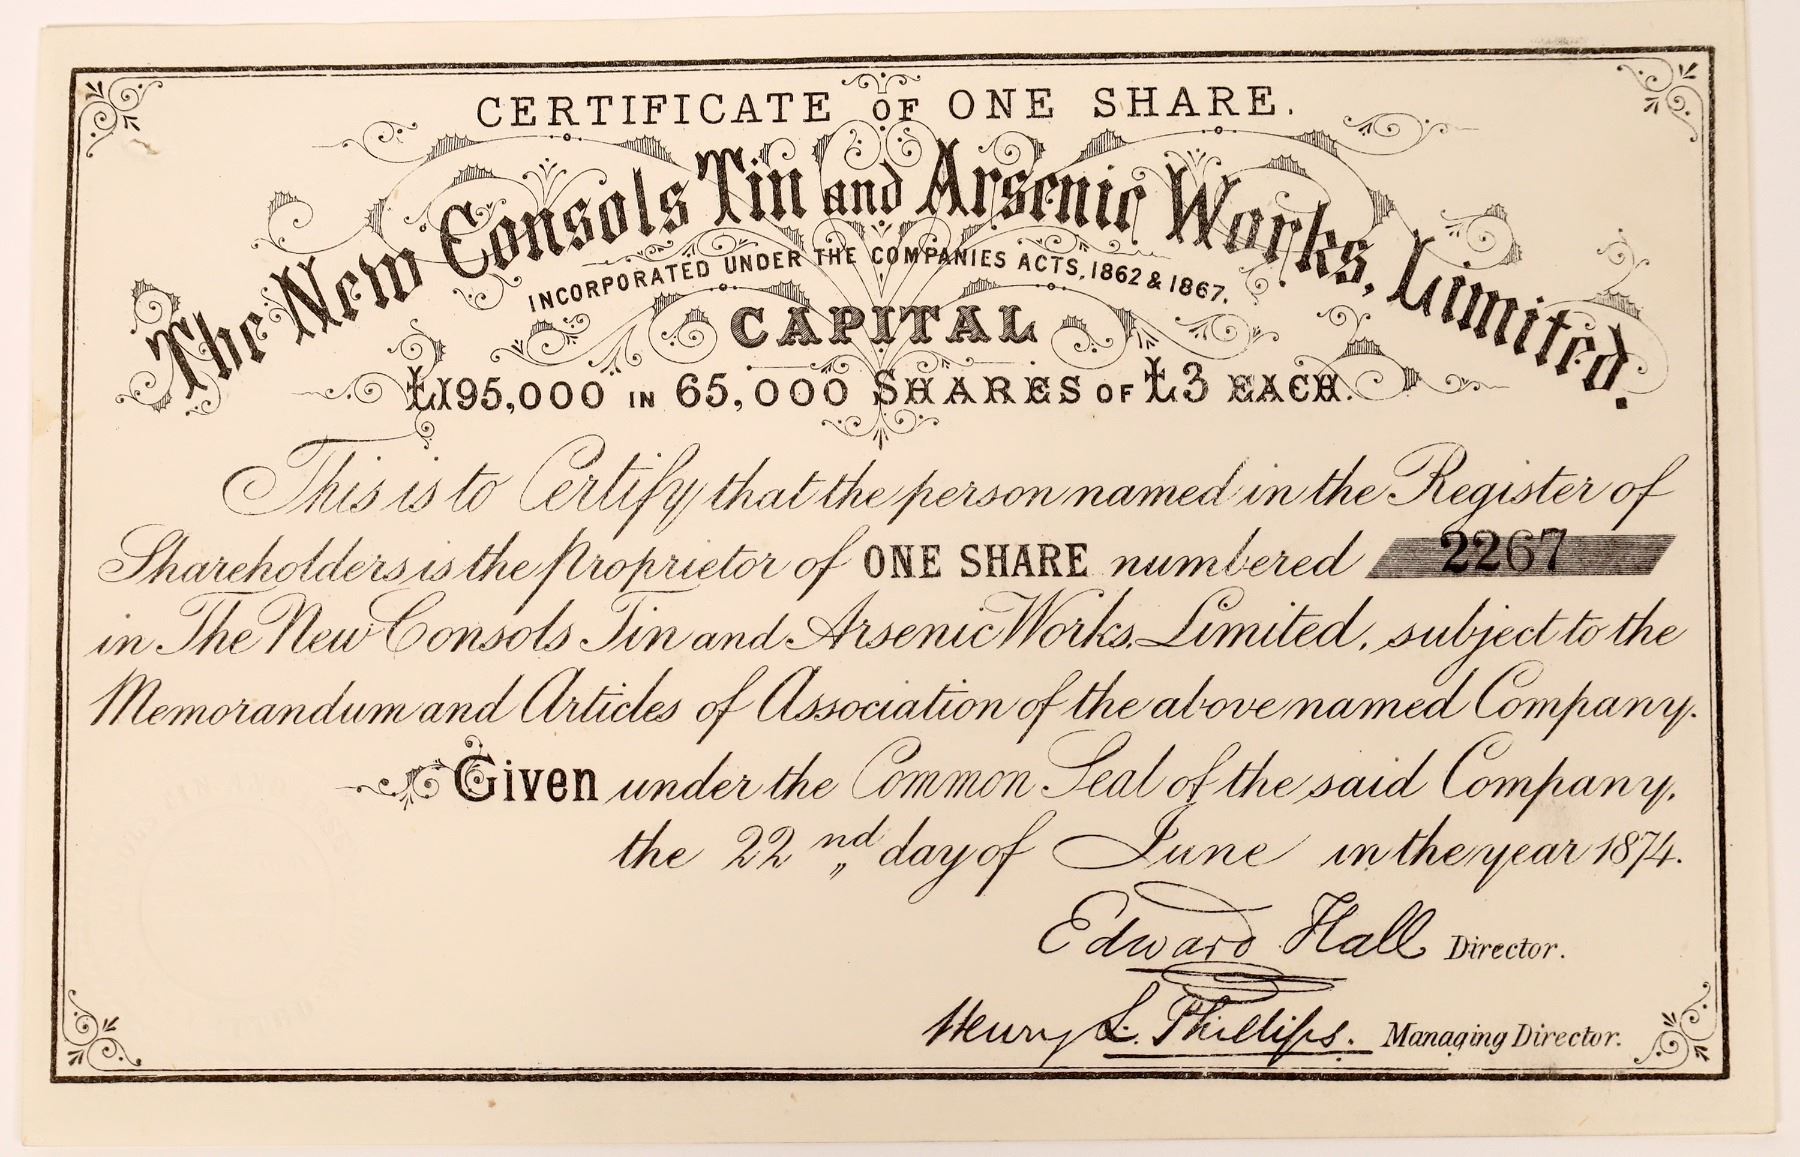 CERTIFICATE OF ONE SHARE.
The New Consols Tin and Arsenic Works, Limited.
INCORPORATED UNDER THE COMPANIES ACTS, 1862 & 1867.
CAPITAL
£195,000 IN 65,000 SHARES OF £3 EACH.
This is to Certify that the person named in the Register of
Shareholders is the Proprietor of ONE SHARE numbered 2267
in The New Consols Tin and Arsenic Works, Limited, subject to the
Memorandum and Articles of Association of the above named Company.
Given under the Common Seal of the said Company,
the 22nd day of June in the year 1874.
Edward Hall Director.
Henry L. Phillips. Managing Director.